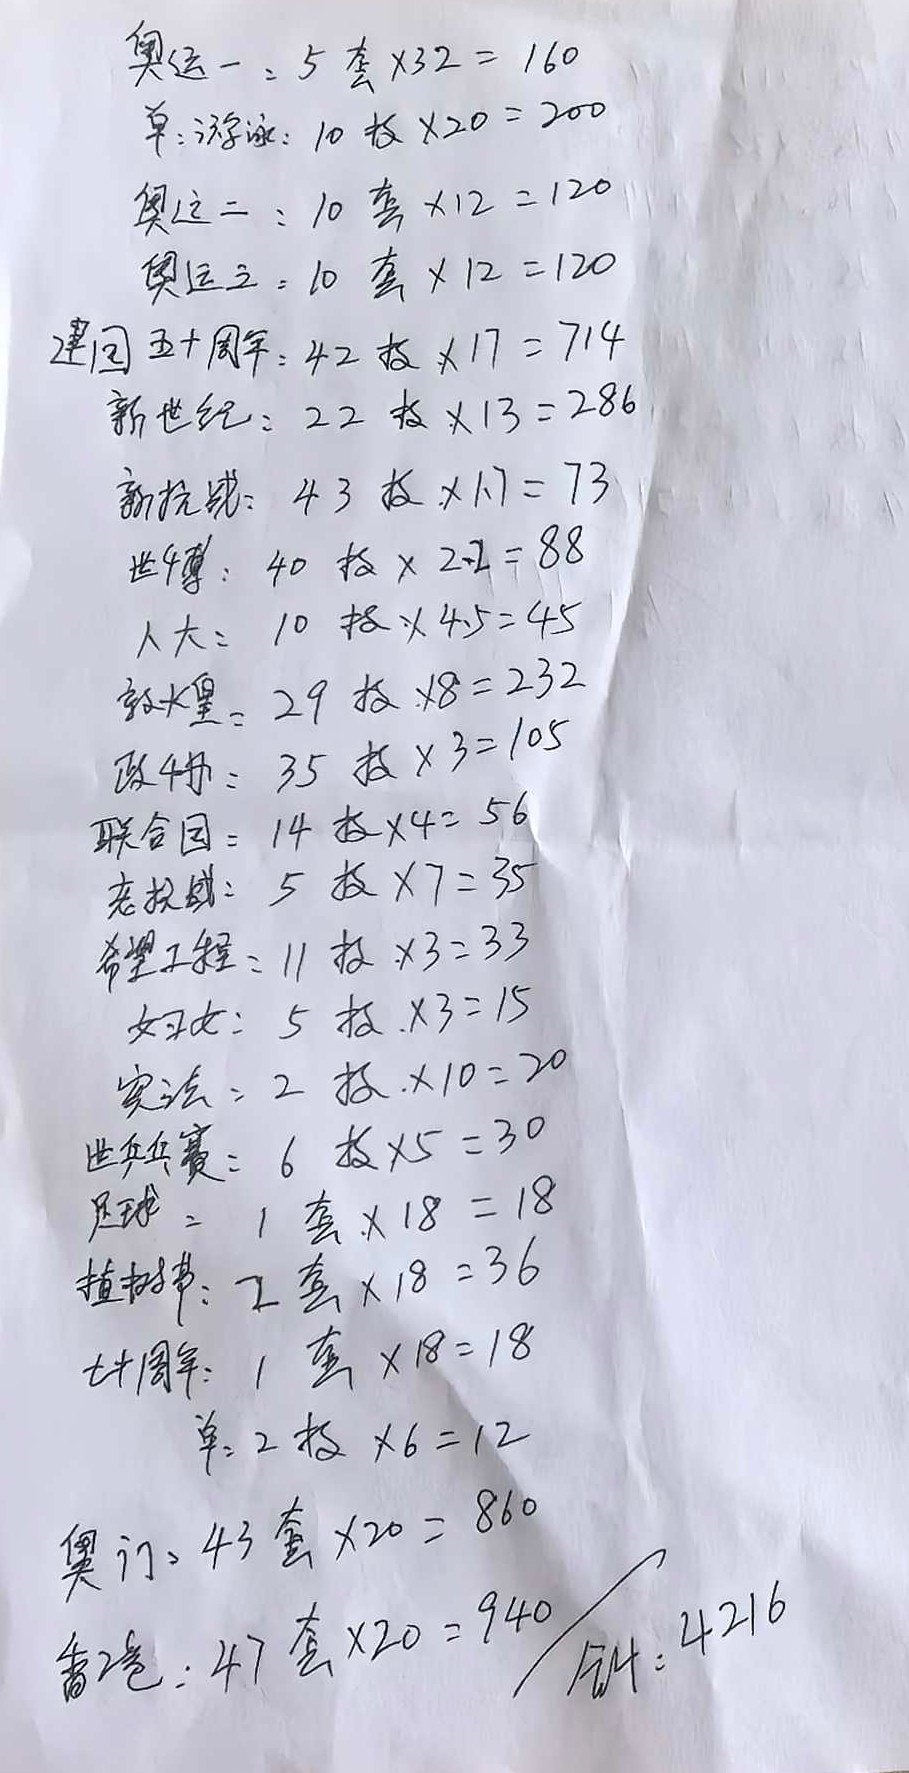 奥运一：5套×32=160
单：游泳：10枚×20=200
奥运二：10套×12=120
奥运三：10套×12=120
建国五十周年：42枚×17=714
新世纪：22枚×13=286
新抗战：43枚×1.7=73
世博：40枚×2.2=88
人大：10枚×4.5=45
敦煌：29枚×8=232
政协：35枚×3=105
联合国：14枚×4=56
老抗战：5枚×7=35
希望工程：11枚×3=33
妇女：5枚×3=15
宪法：2枚×10=20
世乒乓赛：6枚×5=30
足球：1套×18=18
植树节：2套×18=36
七十周年：1套×18=18
单：2枚×6=12
奥门：43套×20=860
香港：47套×20=940
合计：4216